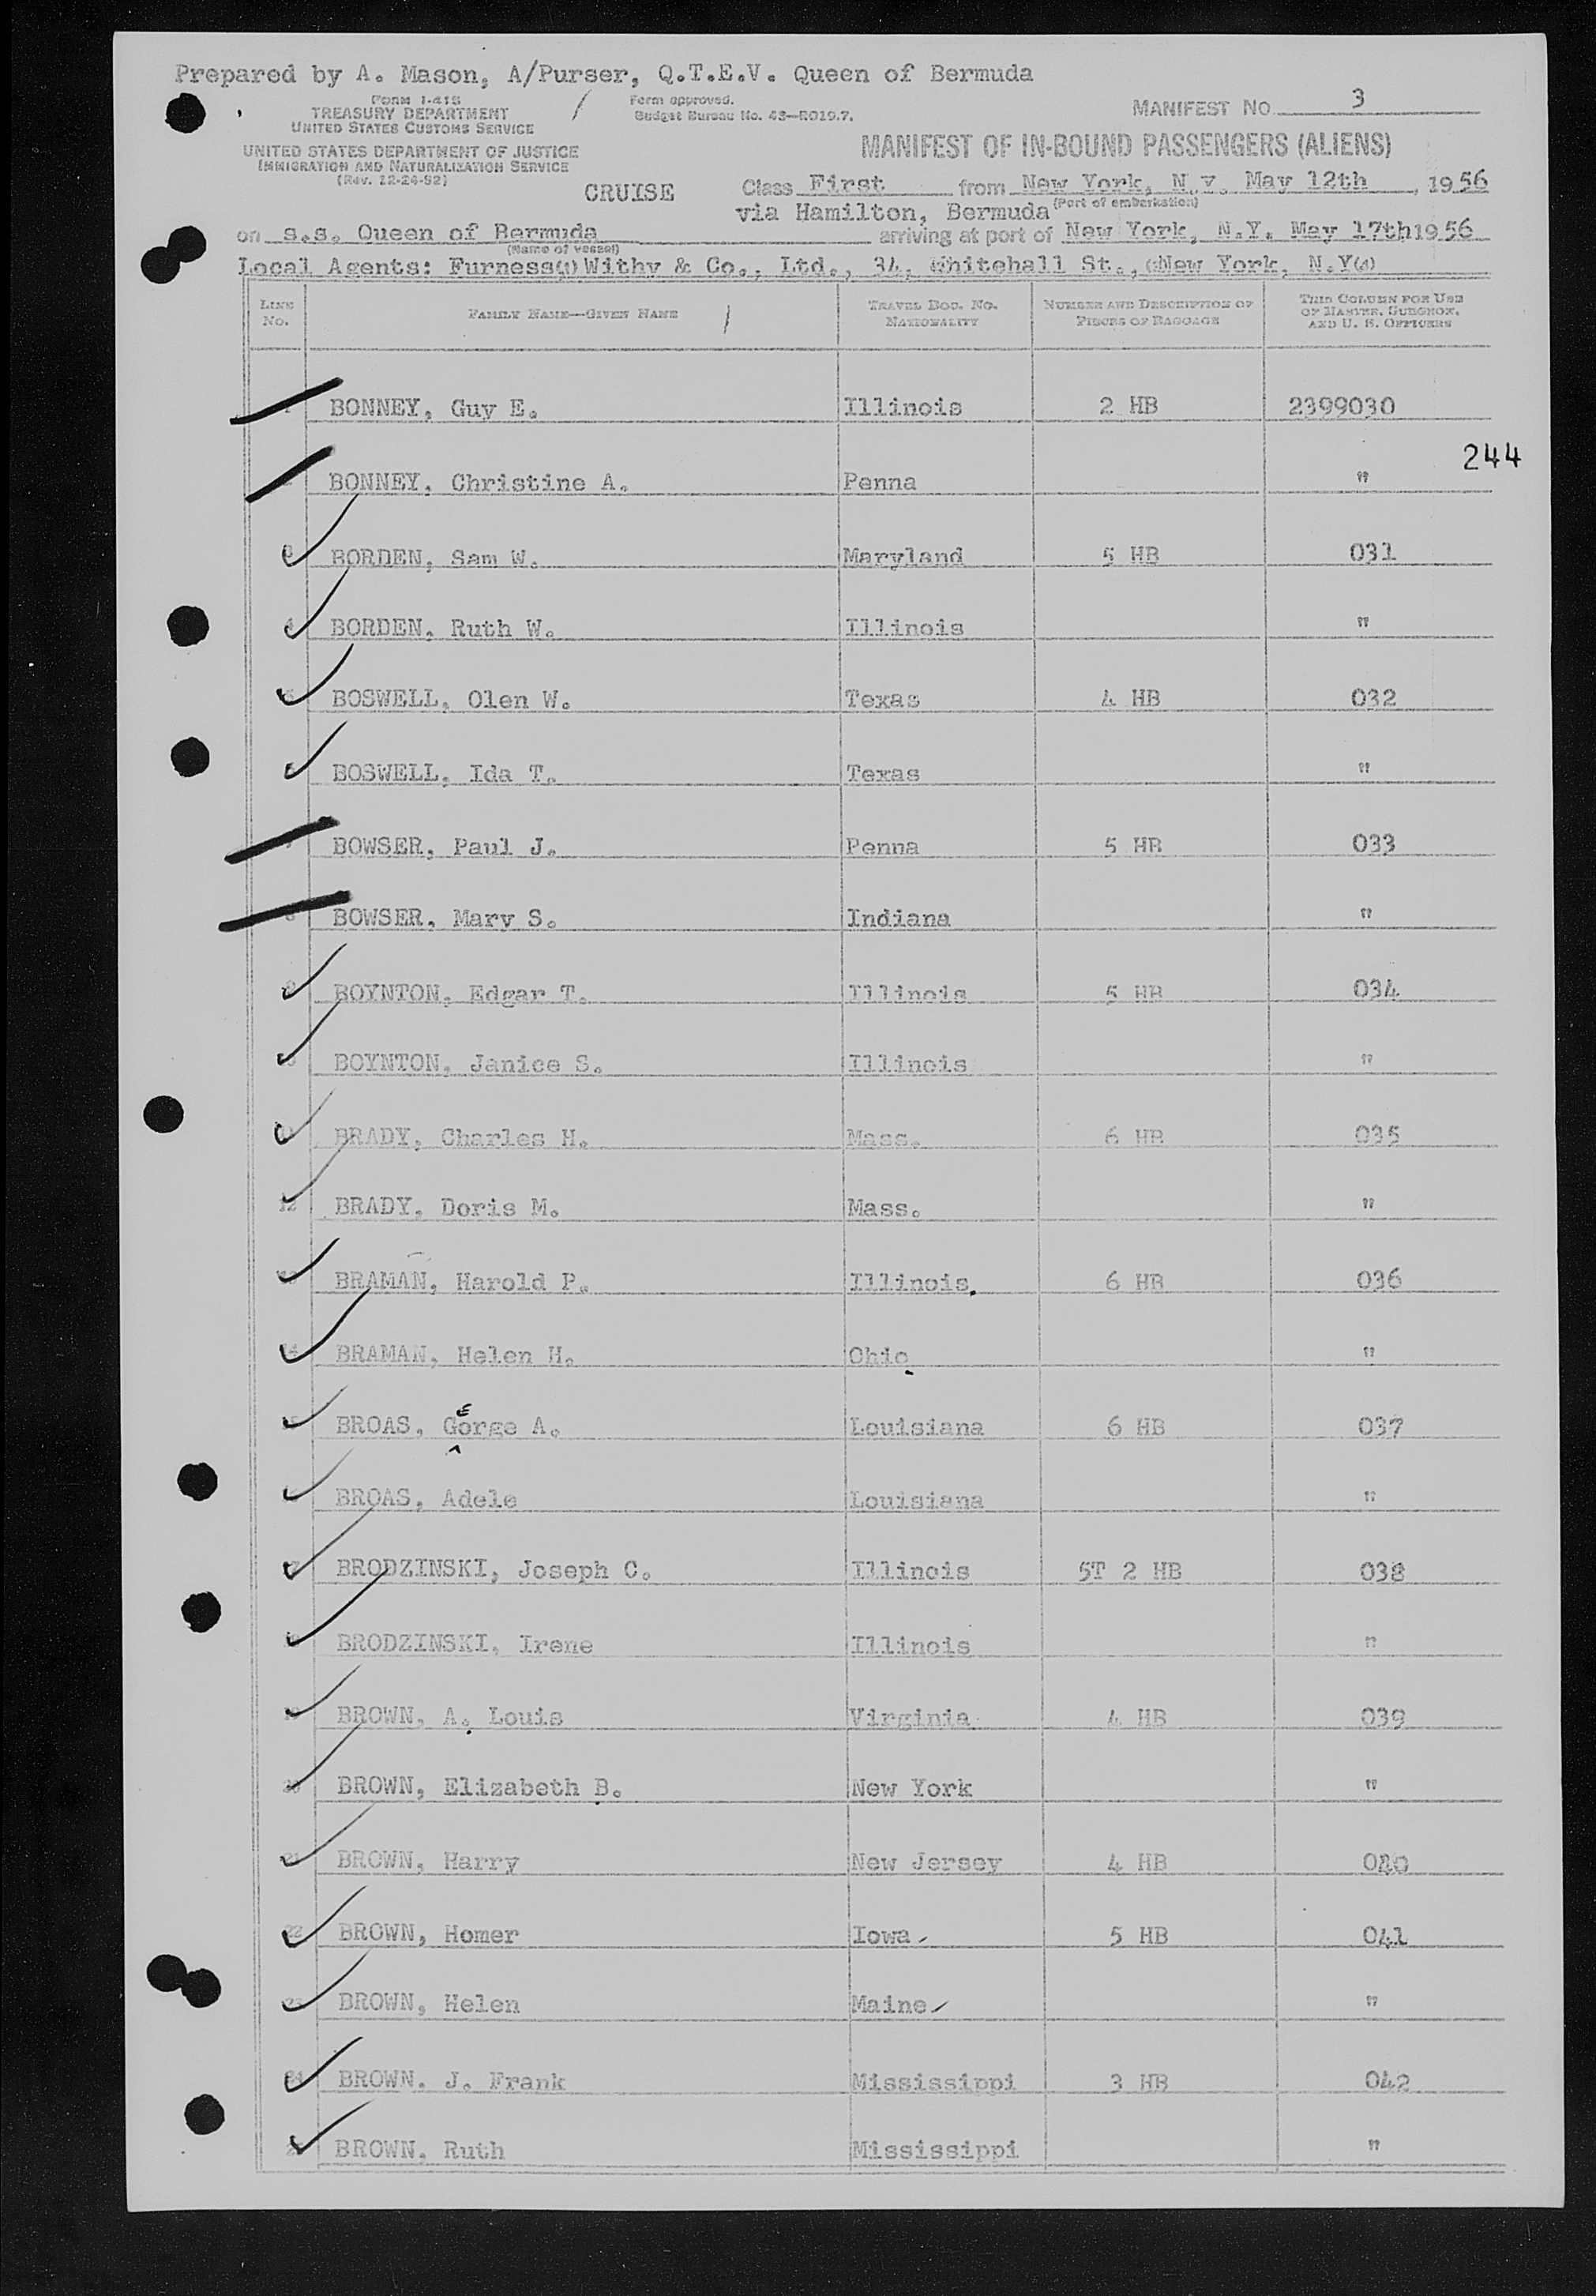 Prepared by A. Mason, A/Purser, Q.T.E.V. Queen of Bermuda
Form I-418
TREASURY DEPARTMENT
UNITED STATES CUSTOMS SERVICE
UNITED STATES DEPARTMENT OF JUSTICE
IMMIGRATION AND NATURALIZATION SERVICE
(Rev. 12-24-52)
Form approved.
Budget Bureau No. 43—R019.7.
MANIFEST NO. 3
MANIFEST OF IN-BOUND PASSENGERS (ALIENS)
CRUISE Class First from New York, N.Y. May 12th, 1956
via Hamilton, Bermuda (Port of embarkation)
on s.s. Queen of Bermuda arriving at port of New York, N.Y. May 17th 1956
(Name of vessel)
Local Agents: Furness (1) Withy & Co., Ltd., 34, Whitehall St., (3) New York, N.Y. (4)
LINE No. FAMILY NAME—GIVEN NAME TRAVEL DOC. NO. NATIONALITY NUMBER AND DESCRIPTION OF PIECES OF BAGGAGE THIS COLUMN FOR USE OF MASTER, SURGEON, AND U. S. OFFICERS
BONNEY, Guy E. Illinois 2 HB 2399030
244
BONNEY, Christine A. Penna "
BORDEN, Sam W. Maryland 5 HB 031
BORDEN, Ruth W. Illinois "
BOSWELL, Olen W. Texas 4 HB 032
BOSWELL, Ida T. Texas "
BOWSER, Paul J. Penna 5 HB 033
BOWSER, Mary S. Indiana "
BOYNTON, Edgar T. Illinois 5 HB 034
BOYNTON, Janice S. Illinois "
BRADY, Charles H. Mass. 6 HB 035
12 BRADY, Doris M. Mass. "
BRAMAN, Harold P. Illinois. 6 HB 036
14 BRAMAN, Helen H. Ohio "
15 BROAS, GEorge A. Louisiana 6 HB 037
BROAS, Adele Louisiana "
BRODZINSKI, Joseph C. Illinois 5T 2 HB 038
BRODZINSKI, Irene Illinois "
19 BROWN, A. Louis Virginia 4 HB 039
20 BROWN, Elizabeth B. New York "
21 BROWN, Harry New Jersey 4 HB 040
22 BROWN, Homer Iowa 5 HB 041
23 BROWN, Helen Maine "
24 BROWN, J. Frank Mississippi 3 HB 042
BROWN, Ruth Mississippi "